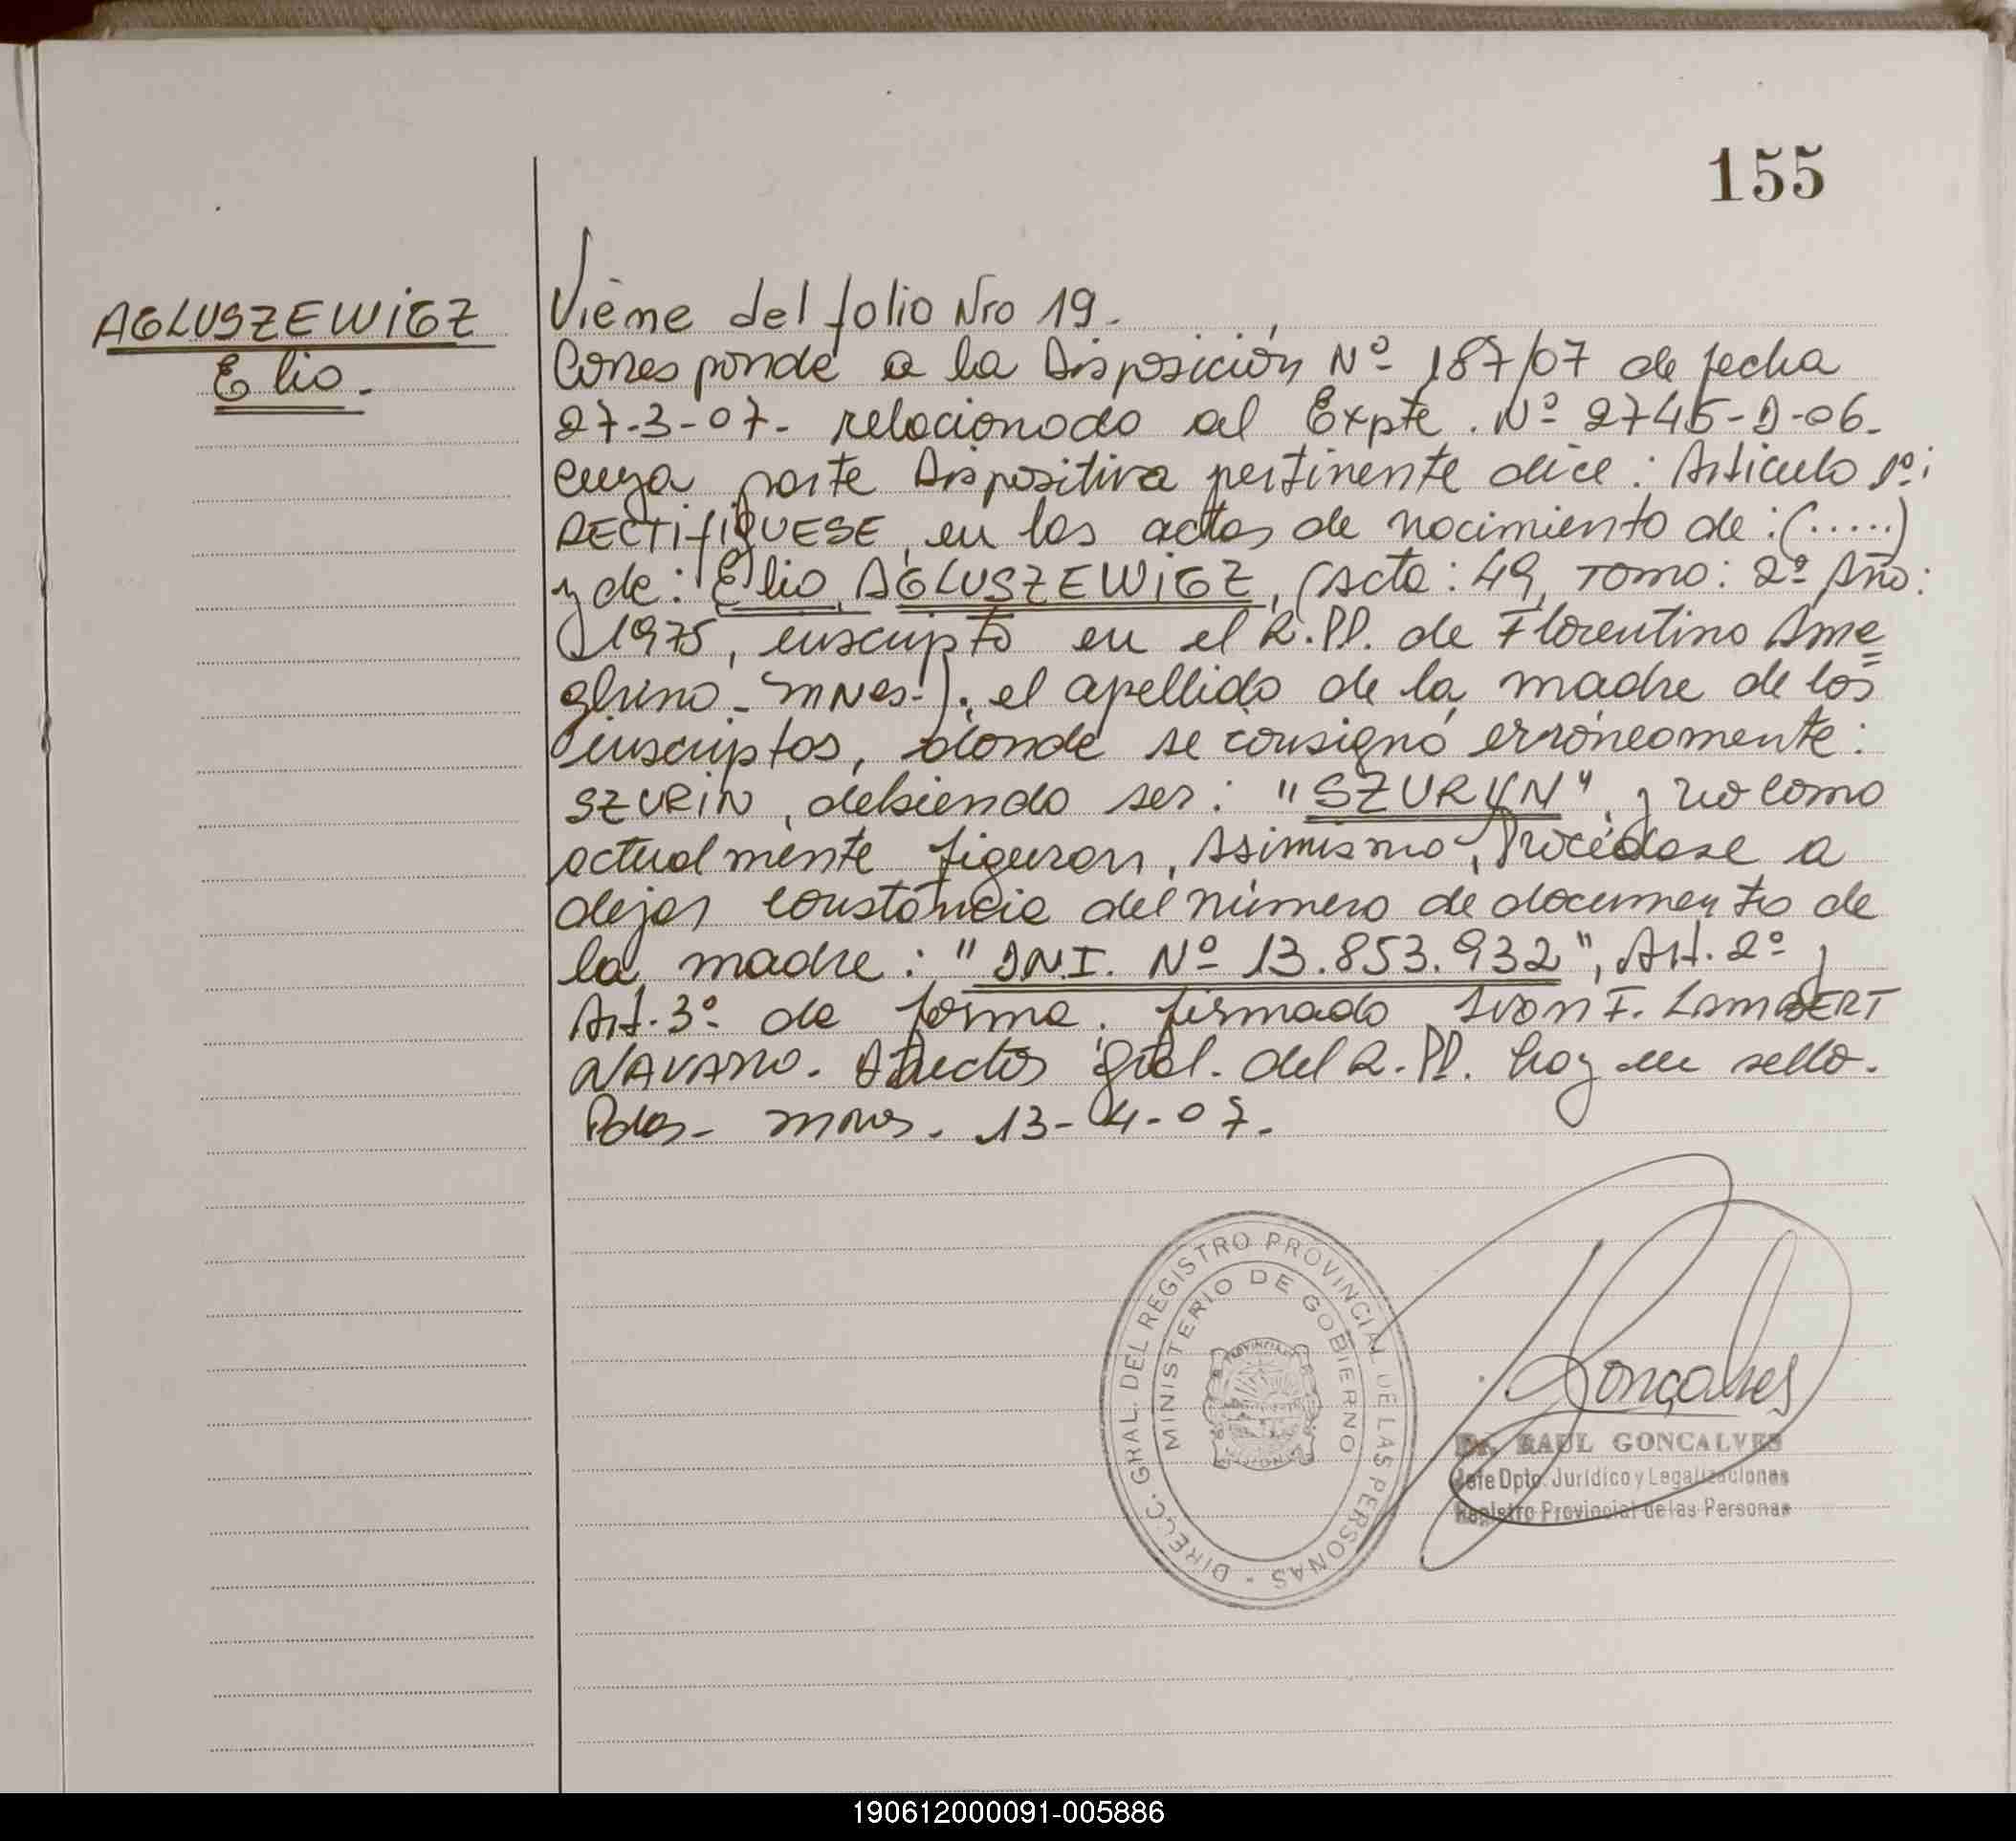 155
AGLUSZEWIGZ
Elio.
Viene del folio Nro 19.
Corresponde a la Disposición Nº 187/07 de fecha
27-3-07- relacionado al Expte. Nº 2745-D-06.
cuya parte Dispositiva pertinente dice: Artículo 1º:
RECTIFIQUESE, en las actas de nacimiento de: (.....)
y de: Elio, AGLUSZEWIGZ, (Acta: 49, TOMO: 2º Año:
1975, inscripto en el R.PP. de Florentino Ame
ghino - Mnes-). el apellido de la madre de los
inscriptos, donde se consignó erróneamente:
SZURIN, debiendo ser: "SZURYN", y no como
actualmente figuran, Asimismo, Procédase a
dejar constancia del número de documento de
la madre: "DNI. Nº 13.853.932", Art. 2º y
Art. 3º de forma. firmado Ivon F. LAMBERT
NAVARRO. Director Gral. del R.PP. hay un sello.
Pdas- mnes. 13-4-07.
DIRECC. GRAL. DEL REGISTRO PROVINCIAL DE LAS PERSONAS -
MINISTERIO DE GOBIERNO
Gonçalves
Dr. RAUL GONCALVES
Jefe Dpto. Jurídico y Legalizaciones
Registro Provincial de las Personas
190612000091-005886